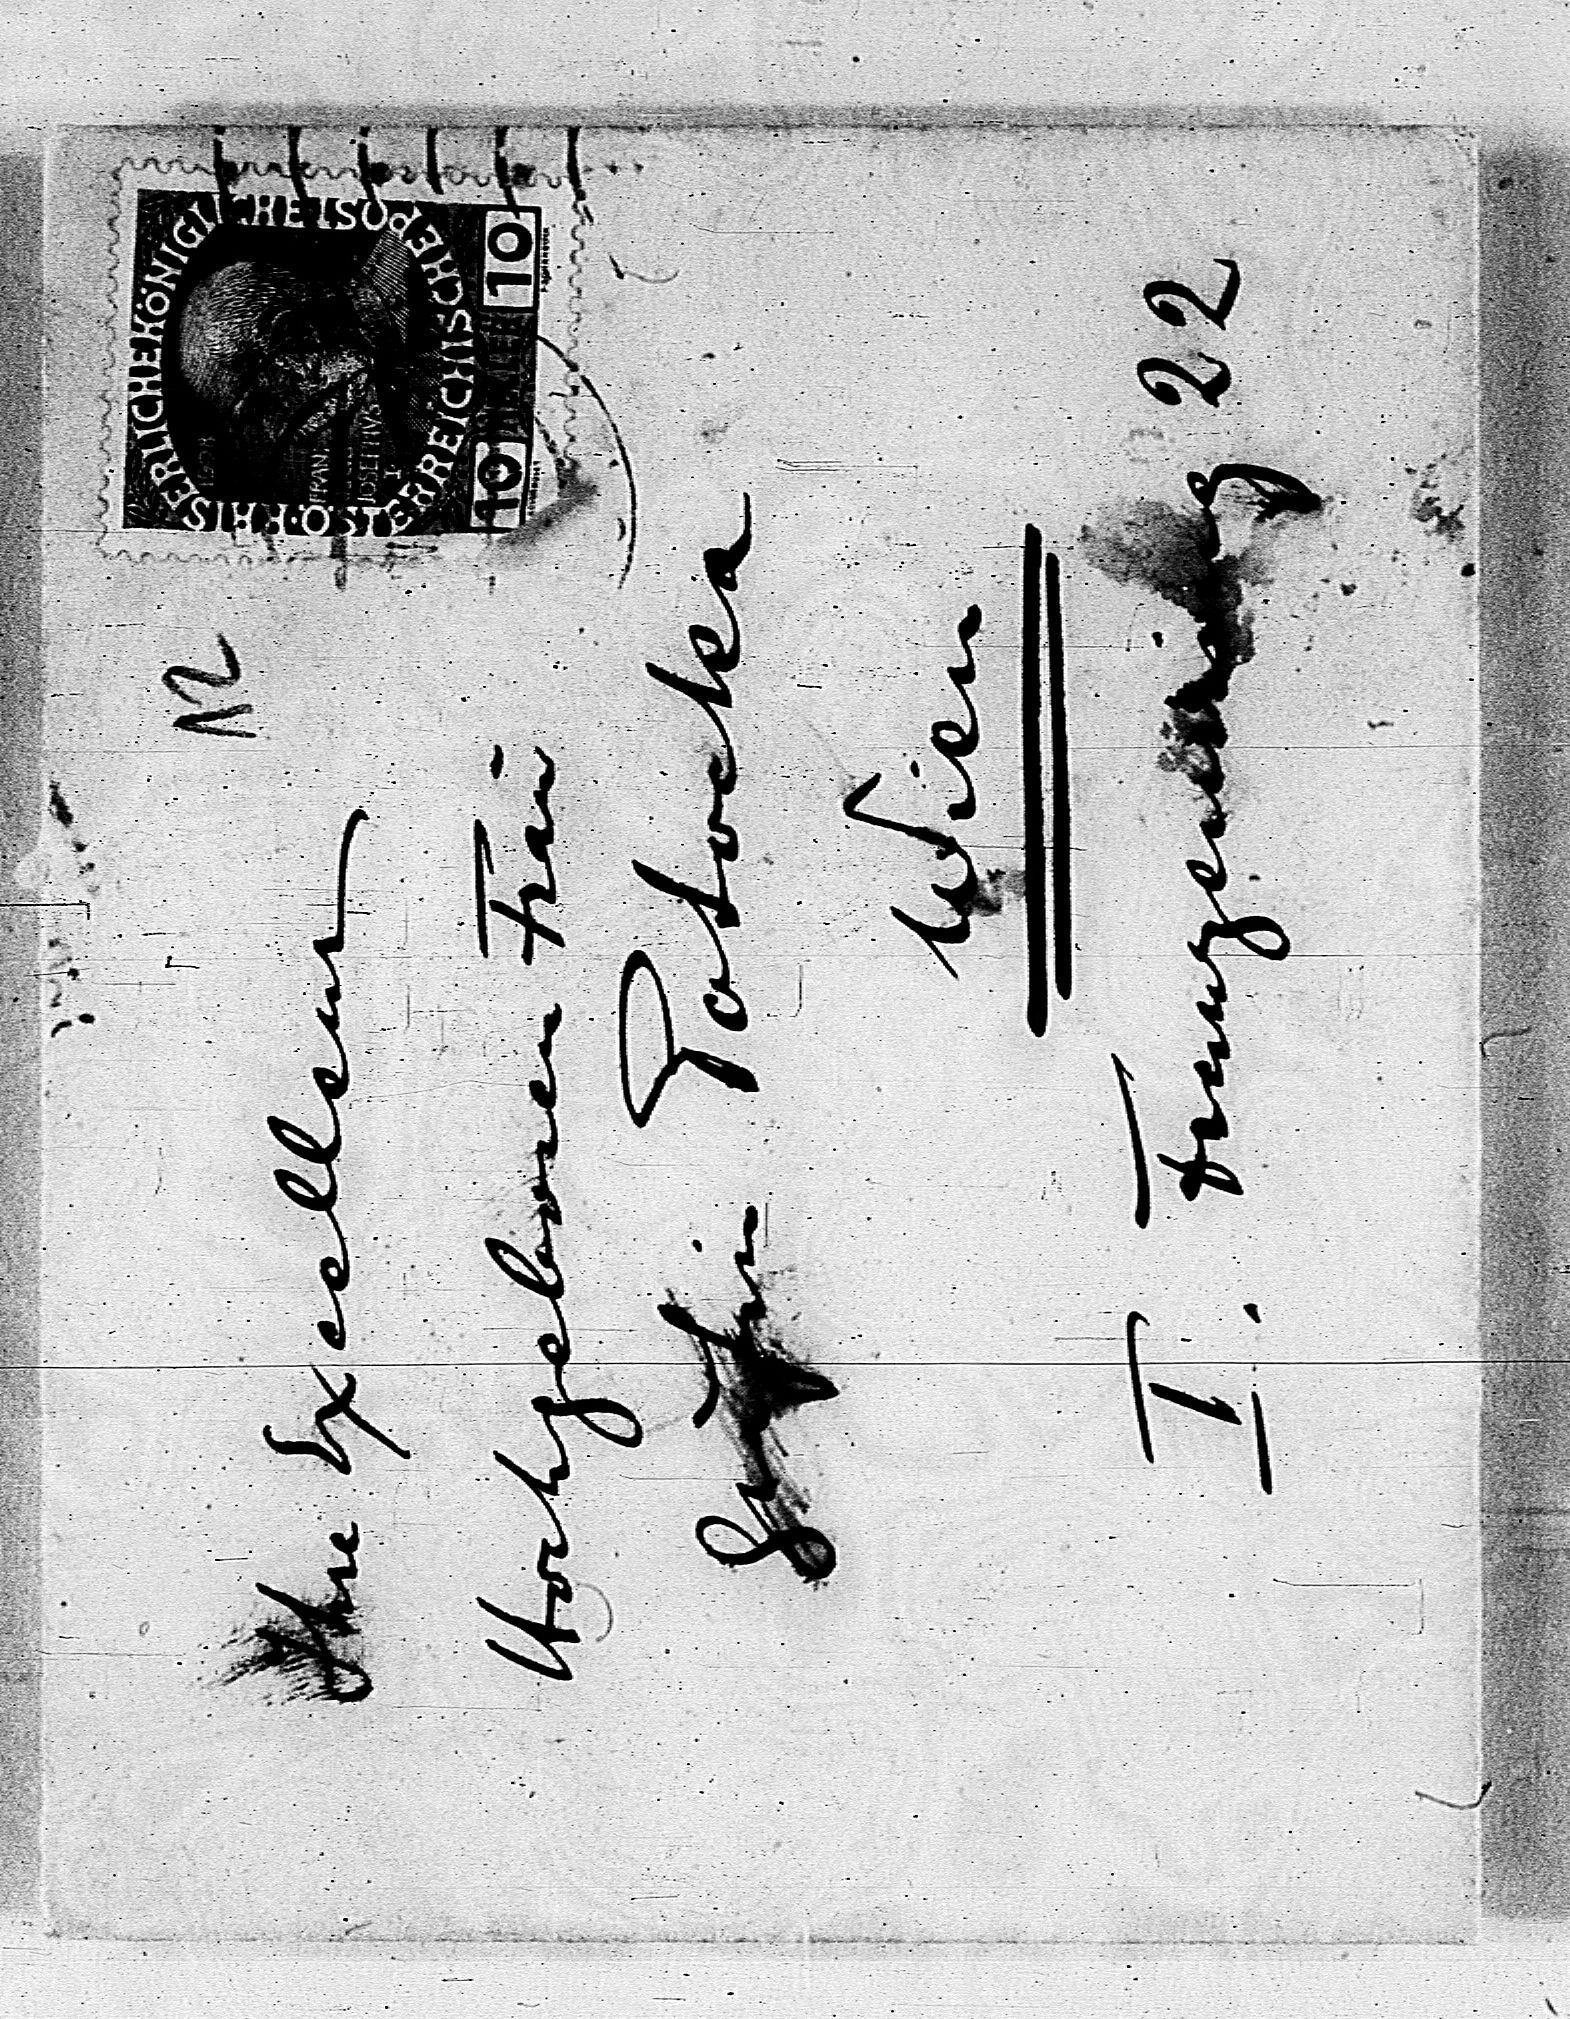 KAISERLICHE KÖNIGLICHE POST
ÖSTERREICHISCHE
1908
FRANC
IOSEPHVS
I
10 HELLER 10
12
Ihre Excellenz
Hochgeboren Frau
Gräfin Potocka
Wien
I. Franzensring 22